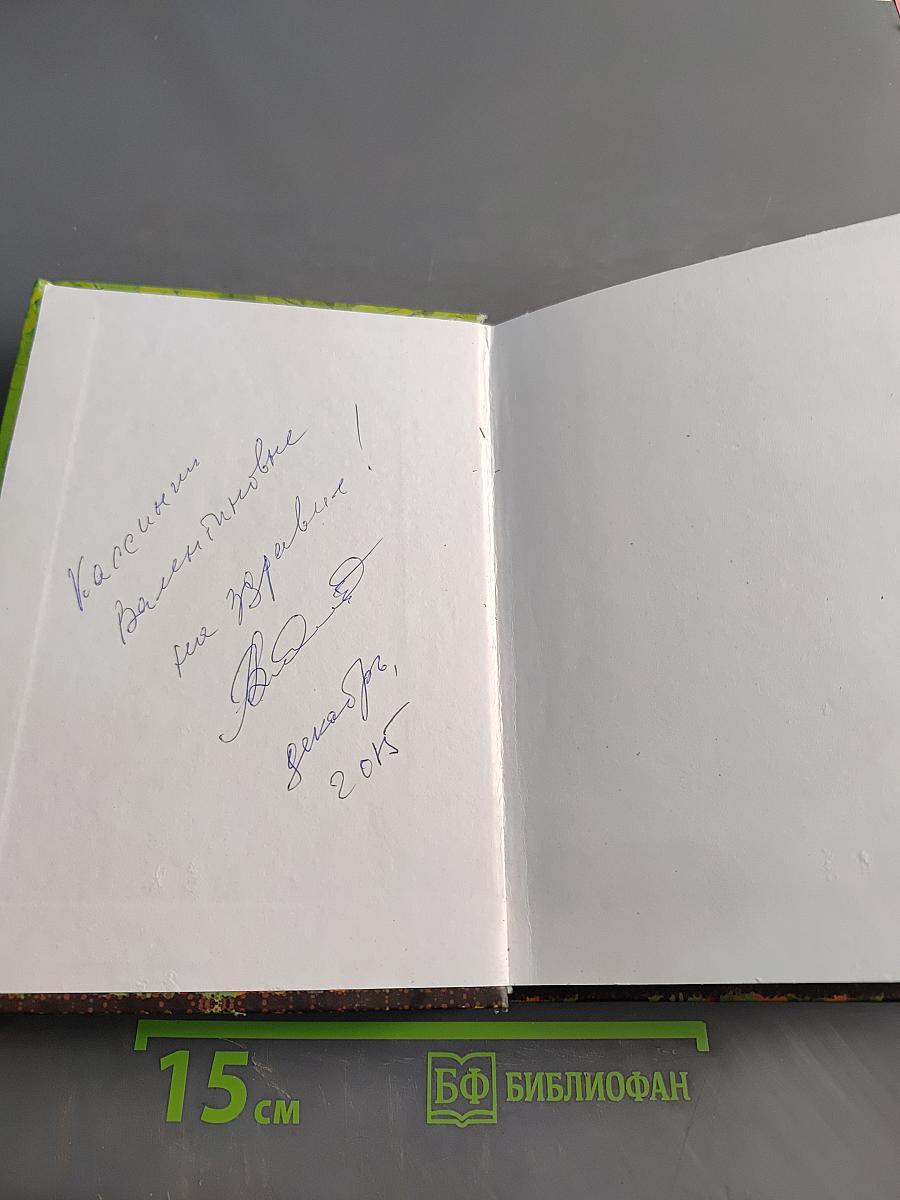 Кассинии
Валентиновне
на здравие!
декабрь,
2015
15 см
БФ БИБЛИОФАН